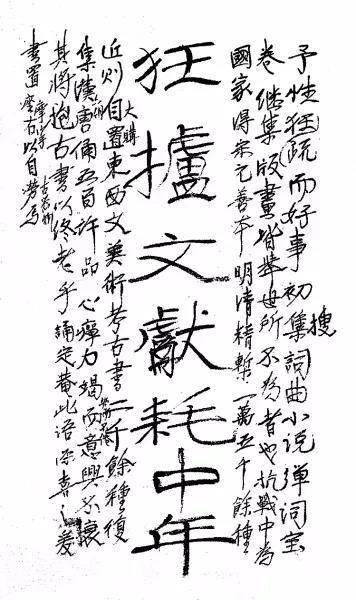 予性狂疏而好事初搜集詞曲小说彈詞宝
卷继集版畫皆举世所不为者也抗戰中为
國家得宋元善本明清精槧一萬五千餘種
狂攎文獻耗中年
近则大購自置東西文美術考古書二千餘種復
集漢唐俑五百許品心瘁力竭而意興不衰
其將抱古書以終老乎誦定菴此语深喜之爰
書置座右以自劳焉